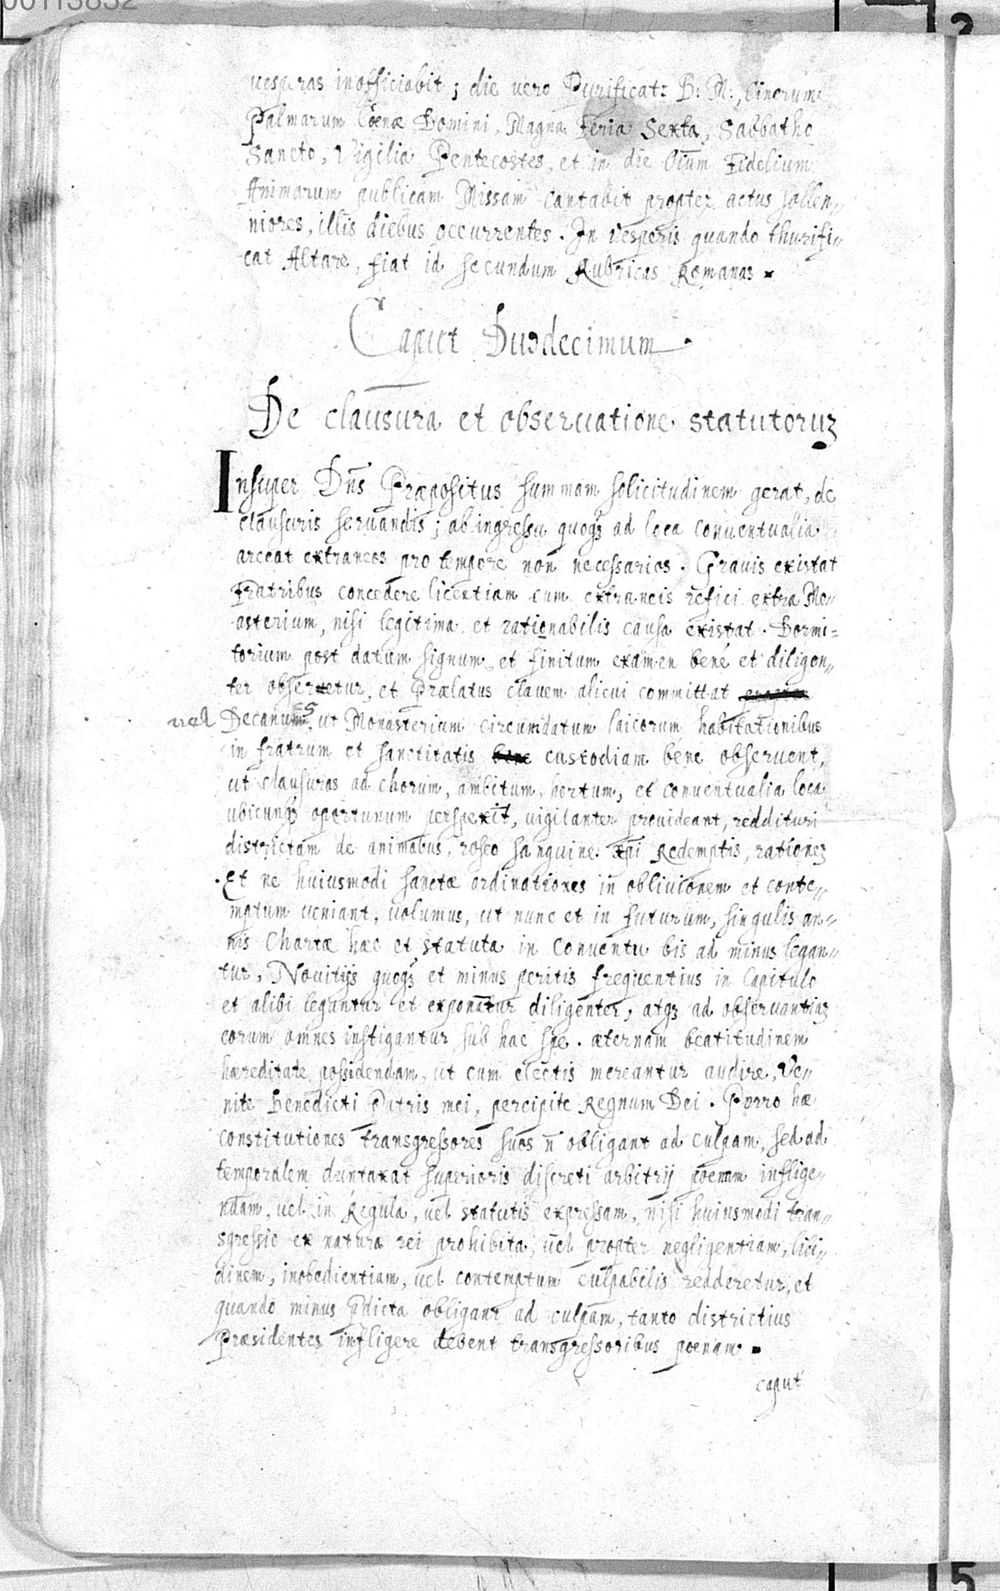 00113832
2
vesperas inofficiabit; die vero Purificat: B: M:, Cinerum
Palmarum Coenæ Domini, Magna Feria Sexta, Sabbatho
Sancto, Vigilia Pentecostes, et in die Oīum Fidelium
Animarum publicam Missam cantabit propter actus sollen„
niores, illis diebus occurrentes. In vesperis quando thurifi„
cat Altare, fiat id secundum Rubricas Romanas.
Caput Duodecimum.
De clausura et observatione statutoruꝫ
Insuper Dn̄s Præpositus summam solicitudinem gerat, de
clausuris servandis; ab ingressu quoqꝫ ad loca conventualia
arceat extraneos pro tempore non necessarios. Gravis existat
Fratribus concedere licentiam cum extraneis refici extra Mo„
asterium, nisi legitima et rationabilis causa existat. Dormi=
torium post datum signum, et finitum examen bene et diligen„
ter observetur, et Prælatus clavem alicui committat propter
vel Decanus, ut Monasterium circumdatum laicorum habitationibus
in fratrum et sanctitatis bene custodiam bene observent,
ut clausuras ad chorum, ambitum, hortum, et conventualia loca
ubicunqꝫ oportunum perspexit, vigilanter provideant, reddituri
districtam de animabus, roseo sanguine Xp̄i Redemptis, rationeꝫ
Et ne huiusmodi sanctæ ordinationes in oblivionem et conte„
mptum veniant, volumus, ut nunc et in futurum, singulis an„
nis Chartæ hæc et statuta in Conventu bis ad minus legan„
tur, Novitijs quoqꝫ et minus peritis frequentius in Capitulo
et alibi legantur et exponantur diligenter, atqꝫ ad observantiaꝫ
eorum omnes instigantur sub hac spe. æternam beatitudinem
hæreditate possidendam, ut cum electis mereantur audire, Ve„
nite Benedicti Patris mei, percipite Regnum Dei. Porro hæ
constitutiones transgressores suos n̄ obligant ad culpam, sed ad
temporalem duntaxat superioris discreti arbitrij poenam inflige„
ndam, vel in Regula, vel statutis expressam, nisi huiusmodi tran„
sgressio ex natura rei prohibita, vel propter negligentiam, libi„
dinem, inobedientiam, vel contemptum culpabilis redderetur, et
quando minus p̄dicta obligant ad culpam, tanto districtius
Præsidentes infligere debent transgressoribus poenam.
caput
15